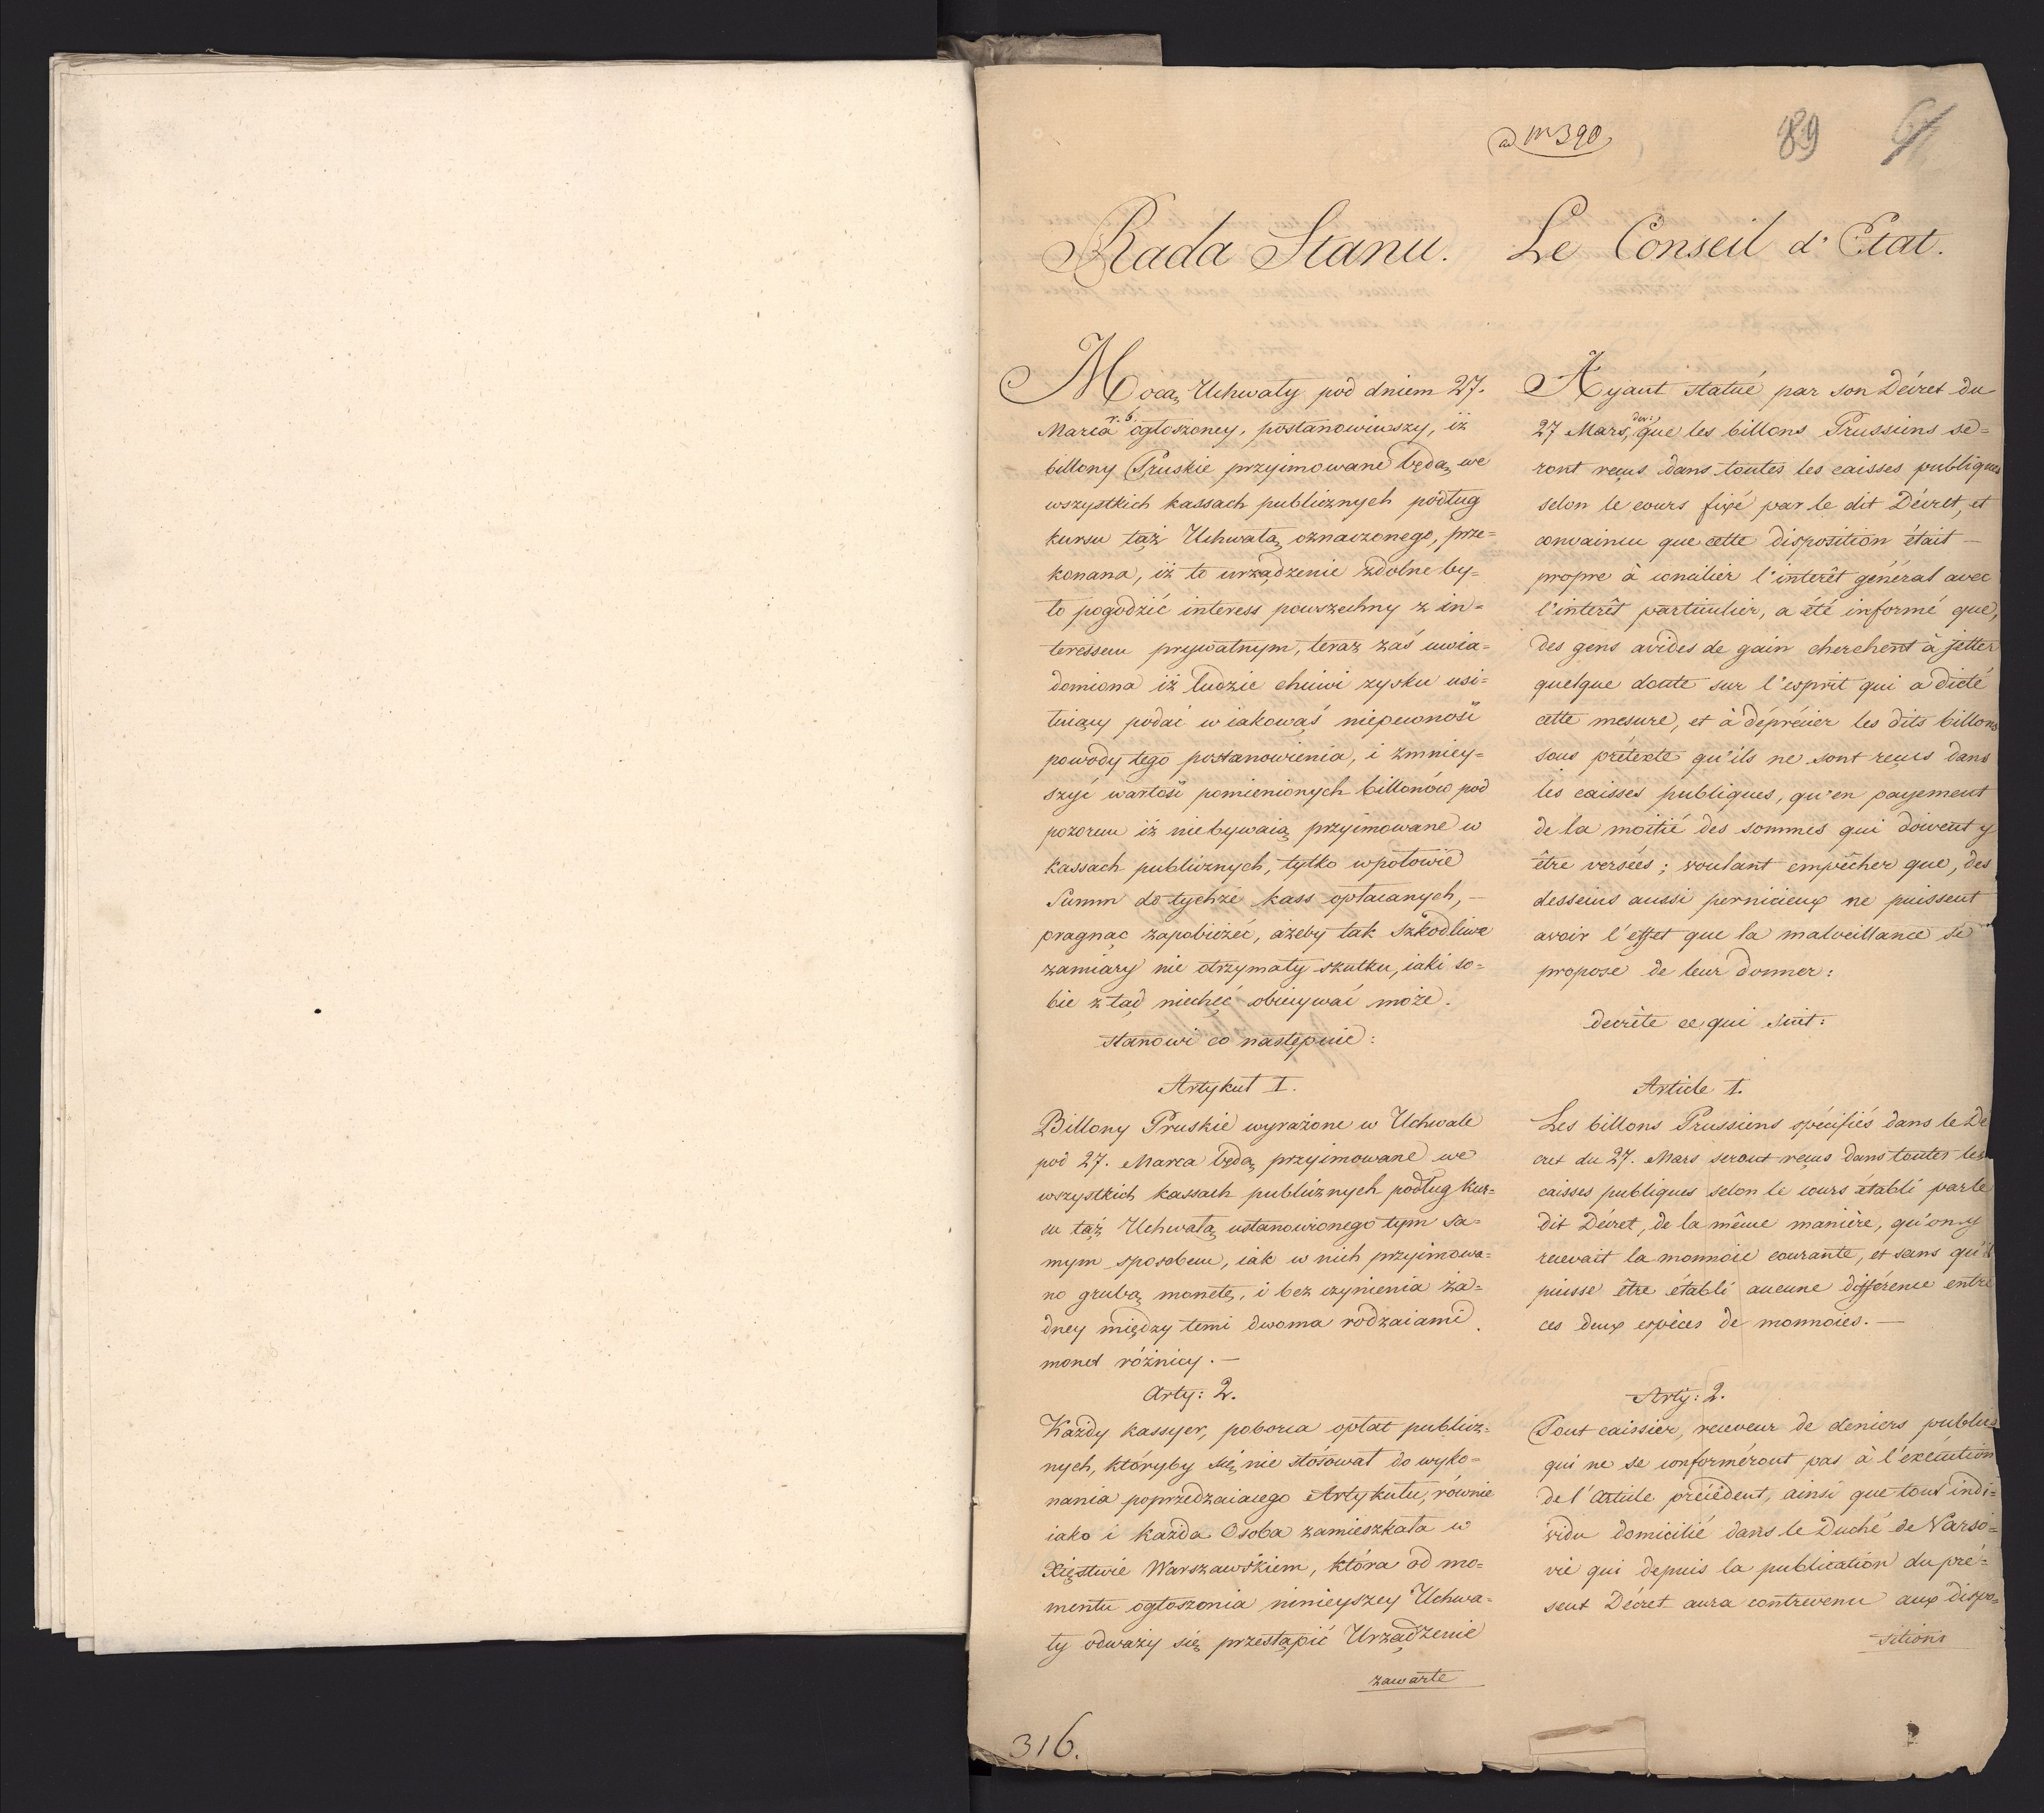 ad nr 390
89
Rada Stanu.
Mocą Uchwały pod dniem 27.
Marca r. b. ogłoszoney, postanowiwszy, iż
billony Pruskie przyimowane będą we
wszystkich kassach publicznych podług
kursu tąż Uchwałą oznaczonego, prze=
konana, iż to urządzenie zdolne by=
ło pogodzić interess powszechny z in=
teressem prywatnym, teraz zaś uwia=
domiona iż ludzie chciwi zysku usi=
łuią podać w iakowąś niepewność
powody tego postanowienia, i zmniey=
szyć wartość pomienionych billonów pod
pozorem iż niebywaią przyimowane w
kassach publicznych, tylko wpołowie
Summ do tychże kass opłacanych, —
pragnąc zapobieżeć, ażeby tak szkodliwe
zamiary nie otrzymały skutku, iaki so=
bie ztąd niechęć obiecywać może.
stanowi co następuie:
Artykuł I.
Billony Pruskie wyrażone w Uchwale
pod 27. Marca będą przyimowane we
wszystkich kassach publicznych podług kur=
su tąż Uchwałą ustanowionego tym sa=
mym sposobem, iak w nich przyimowa=
no grubą monetę, i bez czynienia ża=
dney między temi dwoma rodzaiami
monet różnicy. —
Arty: 2.
Każdy kassyer, poborca opłat publicz=
nych, któryby się nie stósował do wyko=
nania poprzedzaiącego Artykułu, równie
iako i każda Osoba zamieszkała w
Xięstwie Warszawskiem, która od mo=
mentu ogłoszenia ninieyszey Uchwa=
ły odważy się przestąpić Urządzenie
zawarte
316.
Le Conseil d'Etat.
Ayant statué par son Décret du
27 Mars, der: que les billons Prussiens se=
ront reçus dans toutes les caisses publiques
selon le cours fixé par le dit Décret, et
convaincu que cette disposition était —
propre à concilier l'intérêt général avec
l'intérêt particulier, a été informé que,
des gens avides de gain cherchent à jetter
quelque doute sur l'esprit qui a dicté
cette mesure, et à déprécier les dits billons
sous prétexte qu'ils ne sont reçus dans
les caisses publiques, qu'en payement
de la moitié des sommes qui doivent y
être versées; voulant empêcher que, des
desseins aussi pernicieux ne puissent
avoir l'effet que la malveillance se
propose de leur donner:
decrète ce qui suit:
Article 1.
Les billons Prussiens spécifiés dans le Dé
cret du 27. Mars seront reçus dans toutes les
caisses publiques selon le cours établi par le
dit Décret, de la même manière, qu'on y
recevait la monnoie courante, et sans qu'il
puisse être établi aucune différence entre
ces deux espèces de monnoies. —
Arty: 2.
Tout caissier, receveur de deniers publics
qui ne se conforméront pas à l'exécution
de l'Article précédent, ainsi que tout indi=
vidu domicilié dans le Duché de Varso=
vie qui depuis la publication du pré=
sent Décret aura contrevenu aux dispo=
sitions